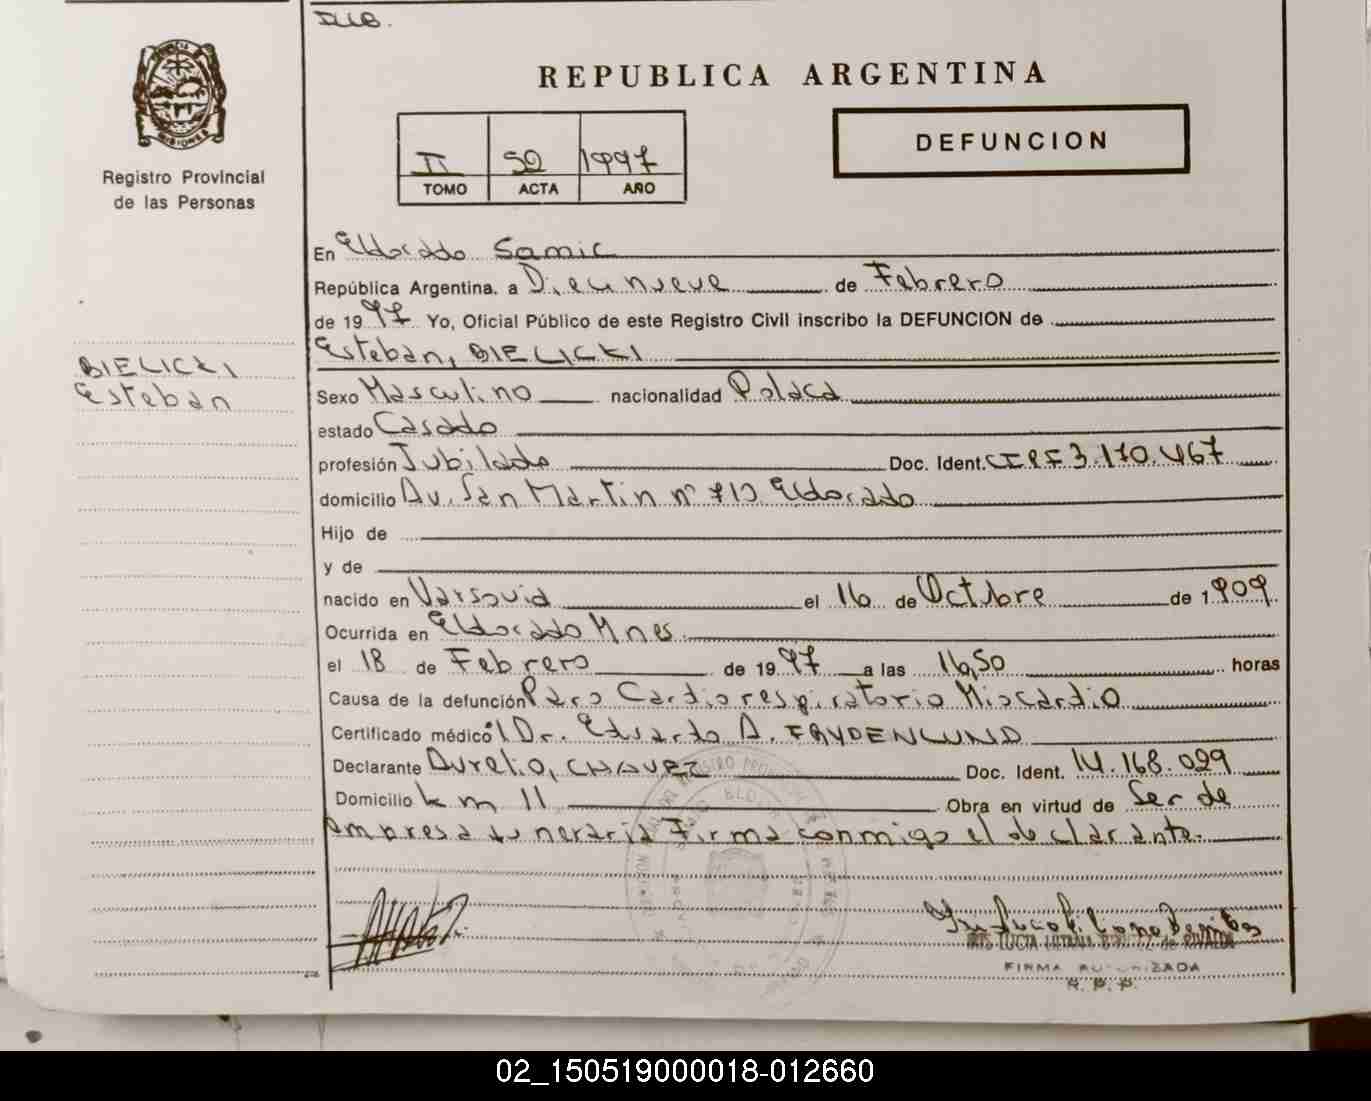 REPUBLICA ARGENTINA
DEFUNCION
II 52 1997
TOMO ACTA AÑO
MISIONES
Registro Provincial
de las Personas
BIELICKI
Esteban
En Eldorado Samic
República Argentina, a Diecinueve de Febrero
de 1997 Yo, Oficial Público de este Registro Civil inscribo la DEFUNCION de
Esteban, BIELICKI
Sexo Masculino nacionalidad Polaca
estado Casado
profesión Jubilado Doc. Ident. CIPF 3.170.467
domicilio Av. San Martin nº 710 Eldorado
Hijo de
y de
nacido en Varsovia el 16 de Octubre de 1909
Ocurrida en Eldorado Mnes.
el 18 de Febrero de 1997 a las 16,50 horas
Causa de la defunción Paro Cardiorespiratorio Miocardio
Certificado médico Dr. Eduardo A. FRYDENLUND
Declarante Aurelio, CHAVEZ Doc. Ident. 14.168.029
Domicilio km 11 Obra en virtud de Ser de
empresa funeraria Firma conmigo el declarante.
FIRMA AUTORIZADA
R. P. P.
02_150519000018-012660